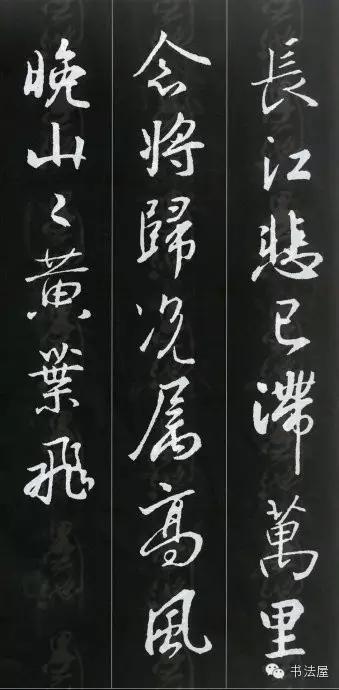 長江悲已滯萬里
念將歸况属高風
晚山〻黄葉飛
书法屋